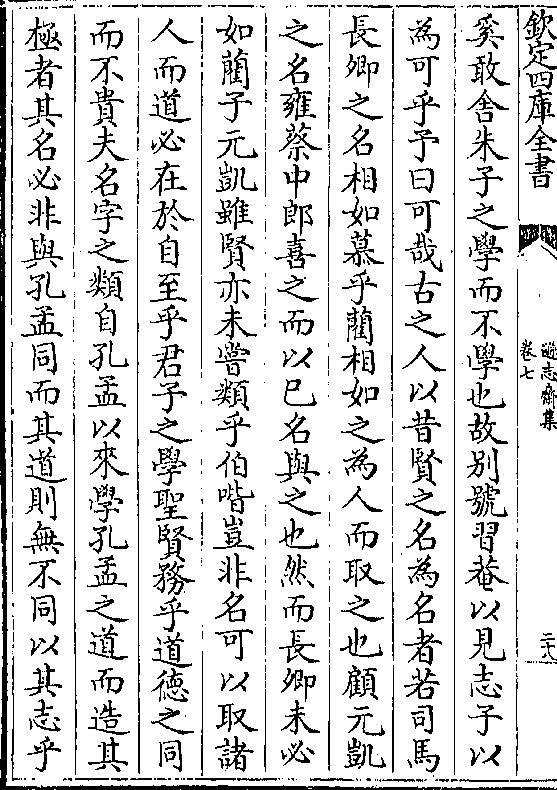 欽定四庫全書
遜志齋集
卷七
二八
奚敢舍朱子之學而不學也故別號習菴以見志子以
為可乎予曰可哉古之人以昔賢之名為名者若司馬
長卿之名相如慕乎藺相如之為人而取之也顧元凱
之名雍蔡中郎喜之而以已名與之也然而長卿未必
如藺子元凱雖賢亦未嘗類乎伯喈豈非名可以取諸
人而道必在於自至乎君子之學聖賢務乎道德之同
而不貴夫名字之類自孔孟以來學孔孟之道而造其
極者其名必非與孔孟同而其道則無不同以其志乎